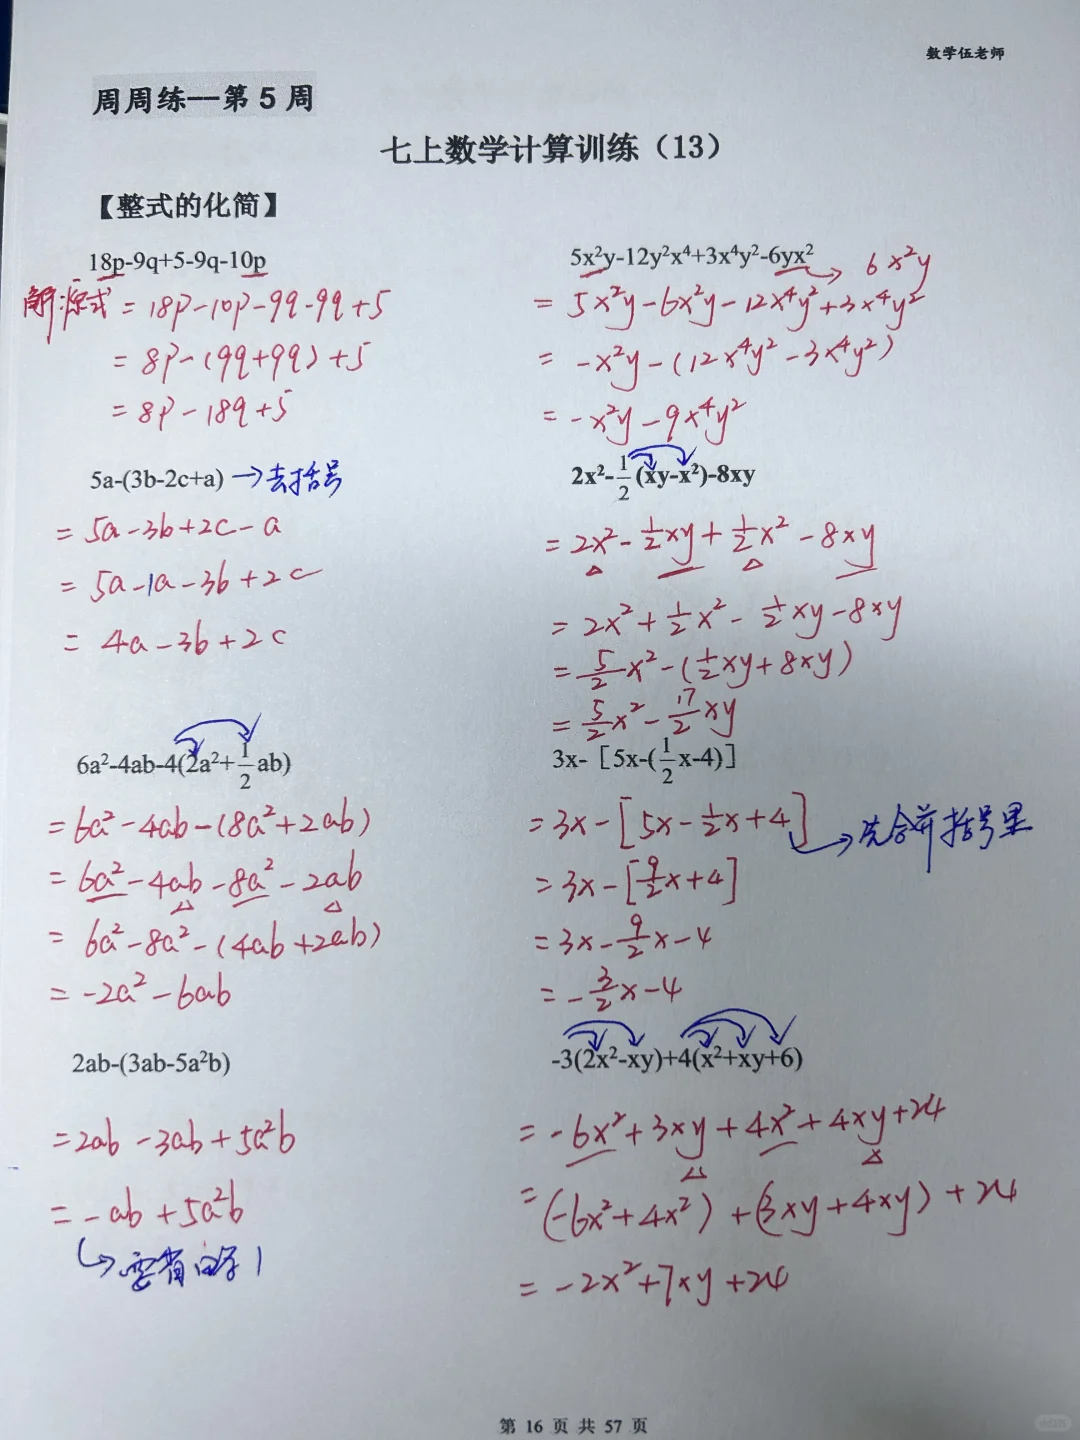 数学伍老师
周周练—第 5 周
七上数学计算训练（13）
【整式的化简】
18p-9q+5-9q-10p
解:原式 = 18p-10p-9q-9q+5
= 8p-(9q+9q)+5
= 8p-18q+5
5x²y-12y²x⁴+3x⁴y²-6yx² → 6x²y
= 5x²y-6x²y-12x⁴y²+3x⁴y²
= -x²y-(12x⁴y²-3x⁴y²)
= -x²y-9x⁴y²
5a-(3b-2c+a) → 去括号
= 5a-3b+2c-a
= 5a-1a-3b+2c
= 4a-3b+2c
2x²-1/2(xy-x²)-8xy
= 2x²-1/2xy+1/2x²-8xy
= 2x²+1/2x²-1/2xy-8xy
= 5/2x²-(1/2xy+8xy)
= 5/2x²-17/2xy
6a²-4ab-4(2a²+1/2ab)
= 6a²-4ab-(8a²+2ab)
= 6a²-4ab-8a²-2ab
= 6a²-8a²-(4ab+2ab)
= -2a²-6ab
3x-［5x-(1/2x-4)］
= 3x-[5x-1/2x+4] → 先合并括号里
= 3x-[9/2x+4]
= 3x-9/2x-4
= -3/2x-4
2ab-(3ab-5a²b)
= 2ab-3ab+5a²b
= -ab+5a²b
→ 要省略 1
-3(2x²-xy)+4(x²+xy+6)
= -6x²+3xy+4x²+4xy+24
= (-6x²+4x²)+(3xy+4xy)+24
= -2x²+7xy+24
第 16 页 共 57 页